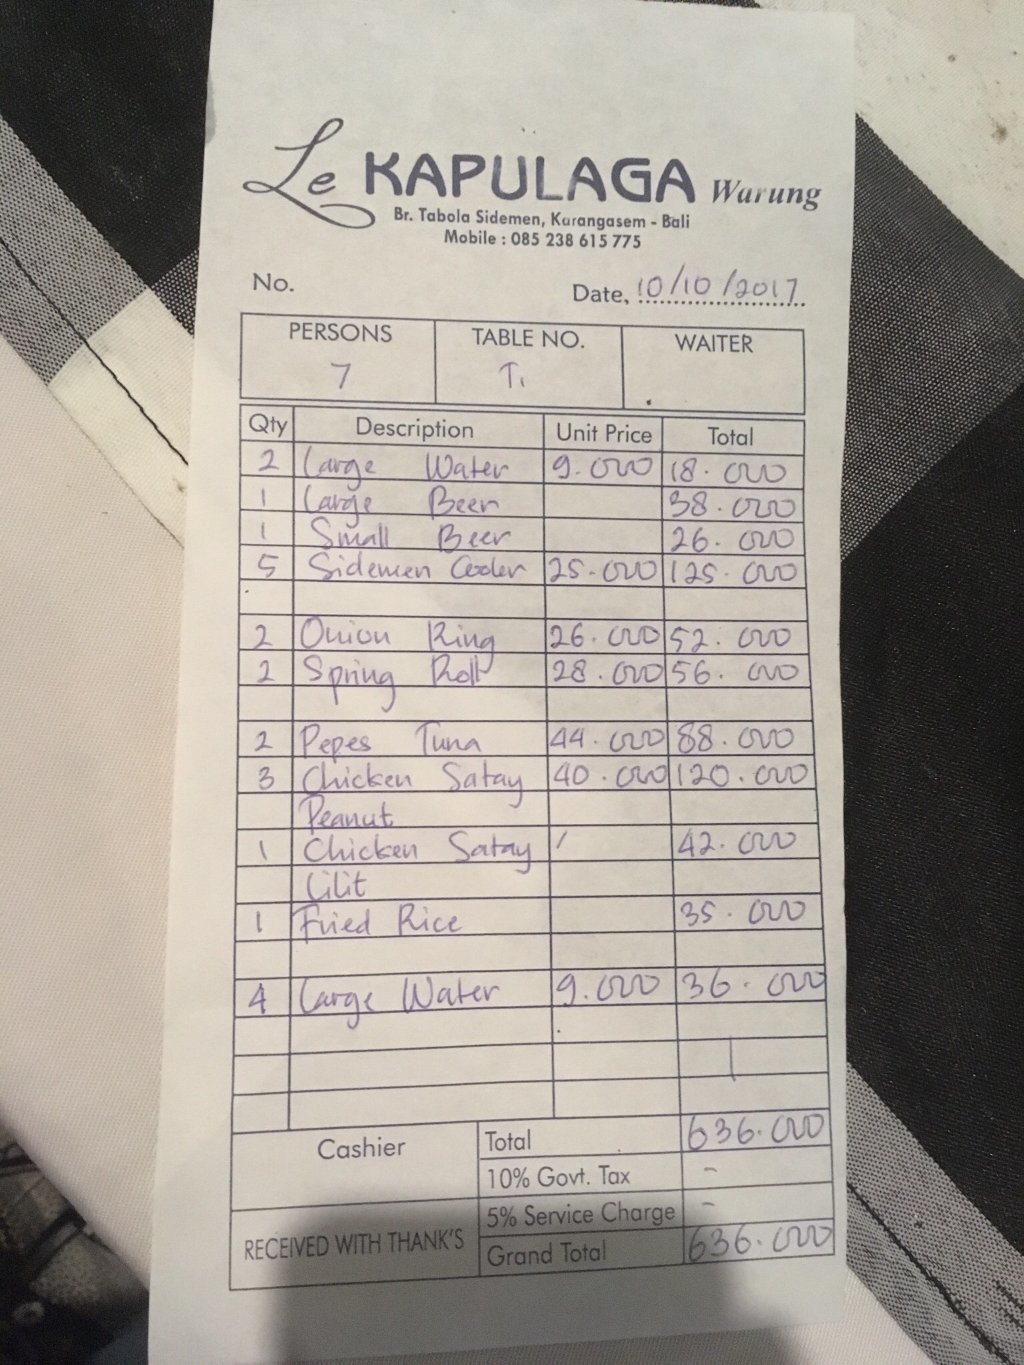 Le KAPULAGA Warung
Br. Tabola Sidemen, Karangasem - Bali
Mobile : 085 238 615 775
No.
Date, 10/10/2017
PERSONS TABLE NO. WAITER
7 T1
Qty Description Unit Price Total
2 Large Water 9.000 18.000
1 Large Beer 38.000
1 Small Beer 26.000
5 Sidemen Cooler 25.000 125.000
2 Onion Ring 26.000 52.000
2 Spring Roll 28.000 56.000
2 Pepes Tuna 44.000 88.000
3 Chicken Satay 40.000 120.000
Peanut
1 Chicken Satay 42.000
Lilit
1 Fried Rice 35.000
4 Large Water 9.000 36.000
Cashier Total 636.000
10% Govt. Tax -
5% Service Charge -
RECEIVED WITH THANK'S Grand Total 636.000